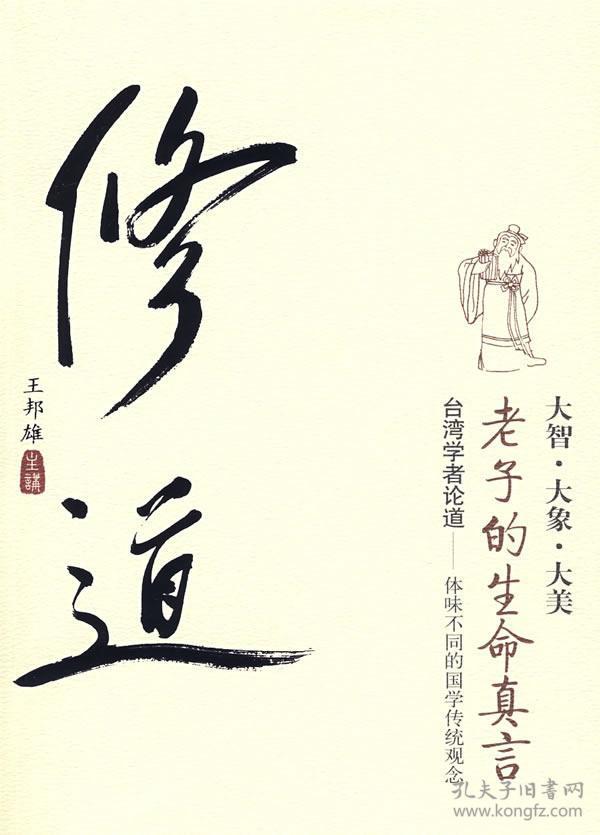 大智·大象·大美
老子的生命真言
台湾学者论道——体味不同的国学传统观念
修道
王邦雄
主講
孔夫子旧书网
www.kongfz.com